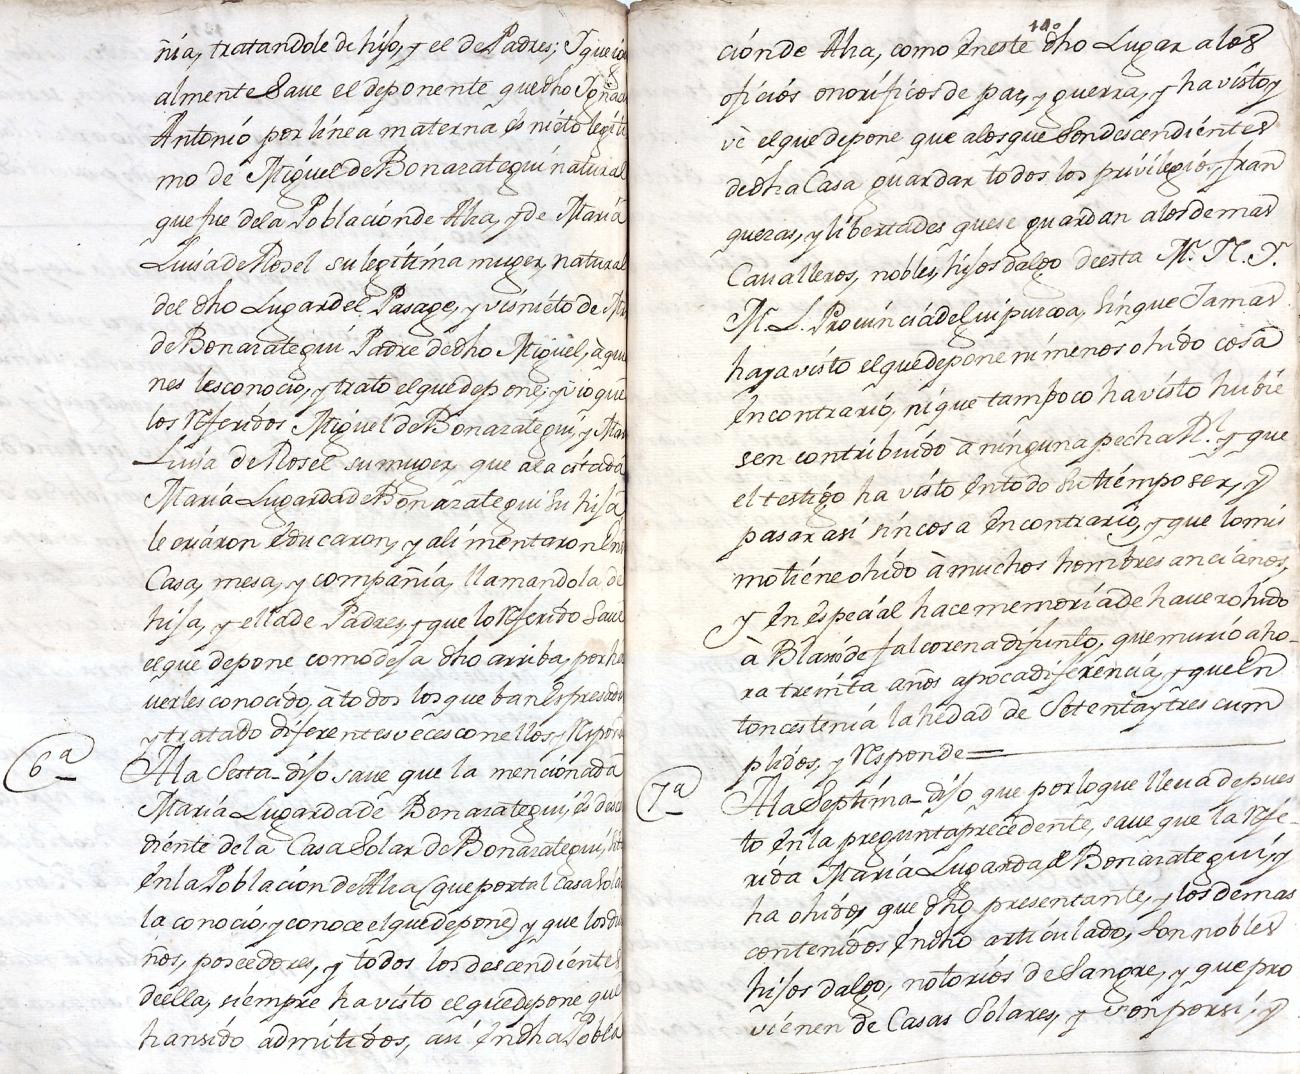 ñia, tratandole de hijo, y el de Padres; Y que
almente Save el deponente que dho
Antonio por línea materna és nieto legiti
mo de Miguel de Bonazategui natural
que fue dela Población de Alza, y de Maria
Luisa de Rosel su legítima muger, natural
del dho Lugar del Pasage, y visnieto de
de Bonazategui Padre de dho Miguel, à quie
nes les conoció, y trato el que depone; y vio que
los Referidos Miguel de Bonazategui, y Mari
Luisa de Rosel su muger, que ala citada
María Lugarda de Bonazategui Su hija
le criáron Educaron, y alimentaron En
Casa, mesa, y compañía, llamandola de
hija, y ella de Padres, y que lo Referido Save
el que depone como deja dho arriba, por ha
verles conocido, à todos los que ban Espresados
y tratado diferentes veces con ellos, y Respon
6ª Ala Sesta dijo save que la mencionada
María Lugarda de Bonazategui, és desc
diente de la Casa Solar de Bonazategui,
En la Población de Alza (que por tal Casa Sola
la conoció, y conoce el que depone) y que los du
ños, poseedores, y todos los descendientes
de ella, siempre ha visto el que depone que
han sido admitidos, asi En dha Pobla
140
ción de Alza, como En este dho Lugar a los
oficiós onoríficos de paz, y guerra, y ha visto y
vè el que depone que alos que Son descendientes
de dha Casa guardar todos los privilegiós, fran
quezas, y libertades que se guardan alos demas
Cavalleros, nobles, hijos dalgo de esta M. N. Y.
M. L. Provincia de Guipuzcoa, Sin que Jamas
haya visto el que depone ni menos ohido cosa
En contrario, ni que tampoco ha visto hubie
sen contribuido à ninguna pecha Rl. y que
el testigo ha visto En todo su tiempo ser, y
pasar asi sin cosa En contrario, y que lo mis
mo tiene ohido à muchos hombres anciános,
y En especial hace memoria de haver ohido
à Blas de falcorena difunto, que murió aho-
ra treinta años apoca diferencia, y que En
tonces tenia la hedad de Setenta y tres cum
plidos, y Responde
7ª Ala Septíma dijo que por lo que lleva depues
to En la pregunta precedente, save que la Refe-
rida María Lugarda de Bonazategui, y
ha ohidos, que dho presentante, y los demas
contenidos En dho articulado, Son nobles
hijos dalgo, notoriós de Sangre, y que pro
vienen de Casas Solares, y son por si, y